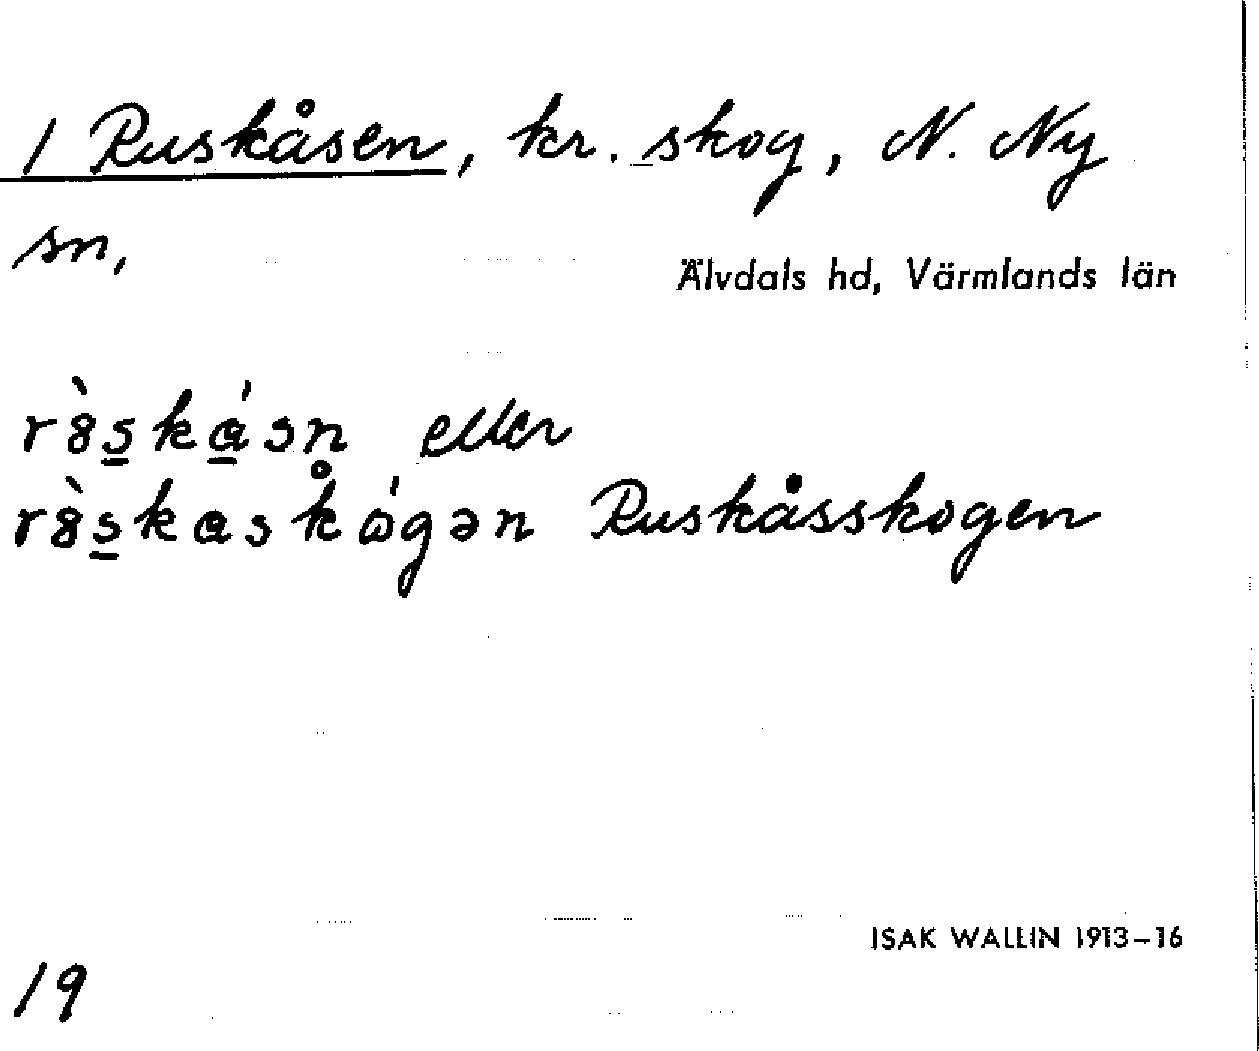 1 Ruskåsen, kr. skog, N. Ny
sn,
Älvdals hd, Värmlands län
eller
Ruskåsskogen
ISAK WALLIN 1913–16
19